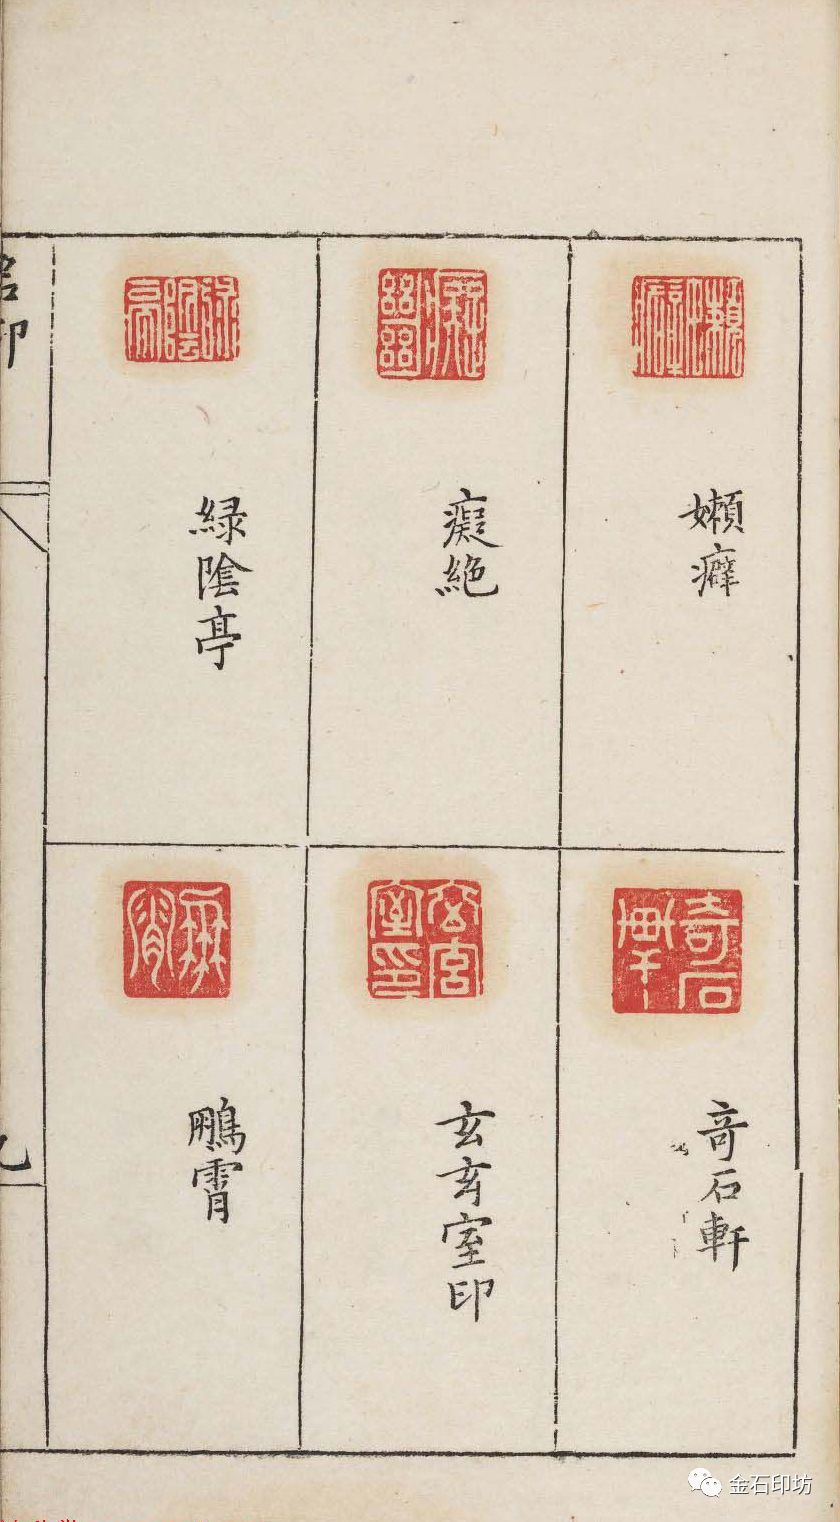 嬾癖
癡絶
緑陰亭
奇石軒
玄玄室印
鵬霄
金石印坊